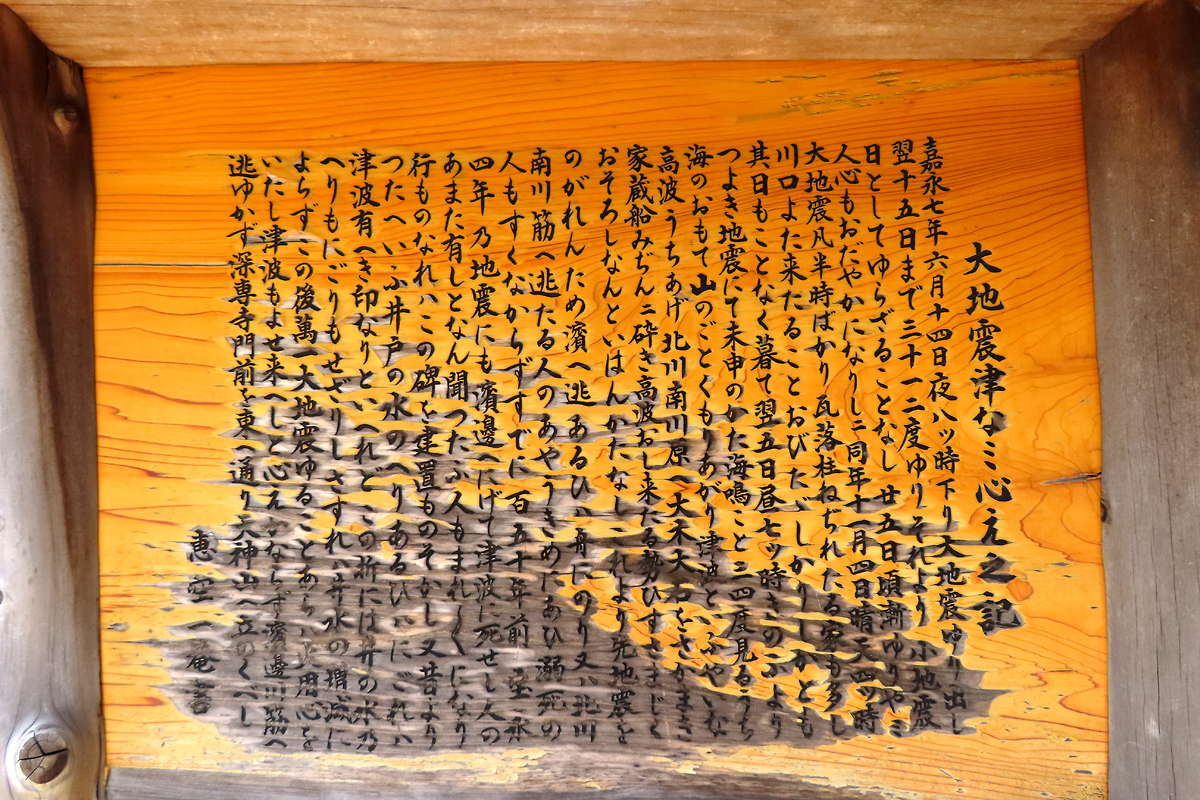 大地震津なミ心え之記
嘉永七年六月十四日夜八ツ時下り大地震ゆり出し
翌十五日まで三十一二度ゆりそれより小地震
日としてゆらざることなし廿五日頃漸ゆりやミ
人心もおだやかになりしニ同年十一月四日晴天四ツ時
大地震凡半時ばかり瓦落柱ねぢれたる家も多し
川口よた来たることおびたゞしかりしかとも
其日もことなく暮て翌五日昼七ツ時きのふより
つよき地震にて未申のかた海鳴こと三四度見るうち
海のおもて山のごとくもりあがり津波といふやいな
高波うちあげ北川南川原へ大木大石をさかまき
家蔵船みぢんニ砕き高波おし来たる勢ひすさまじく
おそろしなんといはんかたなしこれより先地震を
のがれんため濱へ逃あるひハ舟にのり又ハ北川
南川筋へ逃たる人のあやうきめにあひ溺死の
人もすくなからずすでに百五十年前宝永
四年乃地震にも濱邊へにげて津波に死せし人の
あまた有しとなん聞つたふ人もまれ〳〵になり
行ものなれハこの碑を建置ものそかし又昔より
つたへいふ井戸の水のへりあるひハにごれハ
津波有へき印なりといへれどこの折には井の水乃
へりもにごりもせざりしさすれハ井水の増減に
よらずこの後萬一大地震ゆることあらハ火用心を
いたし津波もよせ来へしと心えかならず濱邊川筋へ
逃ゆかず深専寺門前を東へ通り天神山へ立のくへし
恵空一菴書